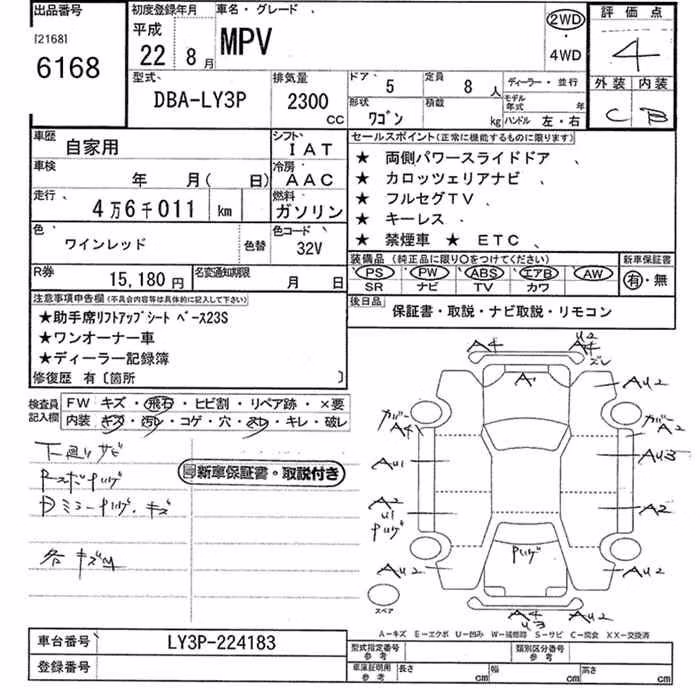 出品番号 初度登録年月 車名・グレード 2WD 評価点
[2168] 平成 ・
6168 22 8月 MPV 4WD 4
型式 排気量 ドア 5 定員 8人 ディーラー・並行 外装 内装
DBA-LY3P 2300 CC 形状 ワゴン 積載 kg モデル年式 年 C B
ハンドル 左・右
車歴 自家用 シフト IAT セールスポイント(正常に機能するものに限ります)
車検 年 月( 日) 冷房 AAC ★ 両側パワースライドドア
★ カロッツェリアナビ
走行 4万6千011 km 燃料 ガソリン ★ フルセグTV
★ キーレス
色 ワインレッド 色替 色コード 32V ★ 禁煙車 ★ ETC
装備品(純正品に限り○をつけてください) 新車保証書
R券 15,180円 名変通知期限 月 日 PS PW ABS エアB AW 有・無
SR ナビ TV カワ
注意事項申告欄(不具合内容等は具体的に記入して下さい) 後日品 保証書・取説・ナビ取説・リモコン
★助手席リフトアップシート ベース23S
★ワンオーナー車
★ディーラー記録簿
修復歴 有〔箇所 〕
検査員記入欄 FW キズ・飛石・ヒビ割・リペア跡・×要
内装 キズ・汚レ・コゲ・穴・スレ・キレ・破レ
A4 U2
A4
ズレ
A
AU2 AU2
カバー カバー
A4 A2
AU1 AU3
A2 A2
U1
ハゲ
ハゲ
AU2 AU2
A4 AU2
U3
下廻リサビ
新車保証書・取説付き
Dミラーハゲ、キズ
各キズ凹
スペア
A―キズ E―エクボ U―凹み W―補修跡 S―サビ C―腐食 XX―交換済
車台番号 LY3P-224183 型式指定番号 参考 類別区分番号 参考
登録番号 車庫証明用 参考 長さ cm 幅 cm 高さ cm